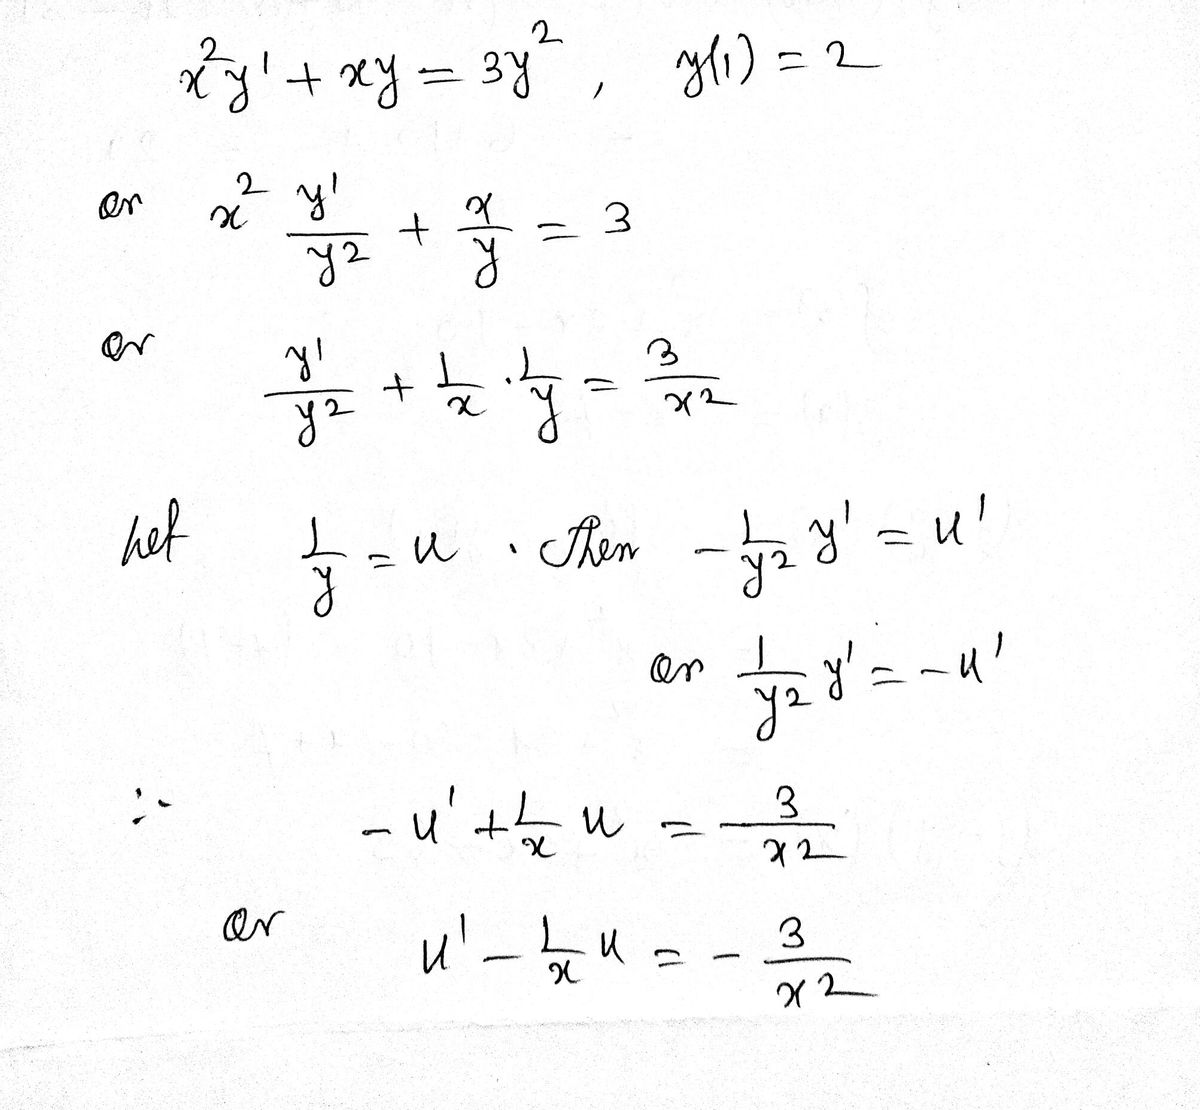 x²y' + xy = 3y², y(1) = 2
or x² y'/y² + x/y = 3
or y'/y² + 1/x · 1/y = 3/x²
Let 1/y = u. Then -1/y² y' = u'
or 1/y² y' = -u'
∴ -u' + 1/x u = 3/x²
or u' - 1/x u = -3/x²